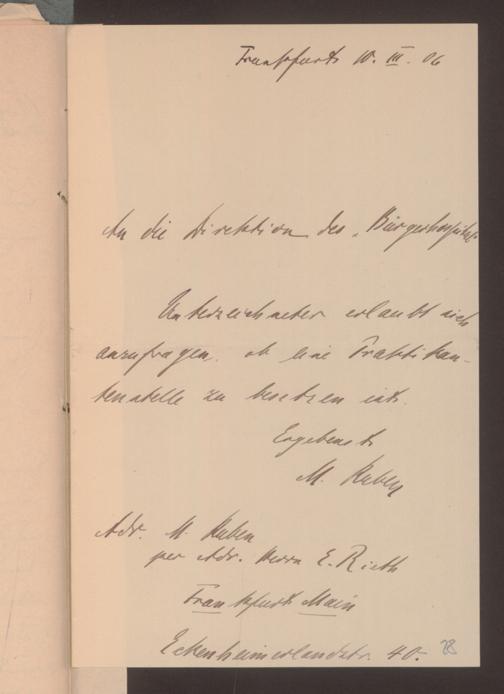 Frankfurt 10. III. 06
An die Direktion des „Bürgerhospitals
Unterzeichneter erlaubt sich
anzufragen, ob eine Praktikan-
tenstelle zu besetzen ist.
Ergebenst
M. Ruben
Adr. M. Ruben
per Adr. Herrn E. Rieth
Frankfurt Main
Eckenheimerlandstr. 40.